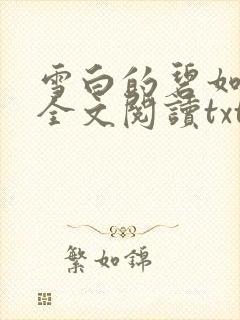 雪白的碧如
全文閱讀txt
繁如錦